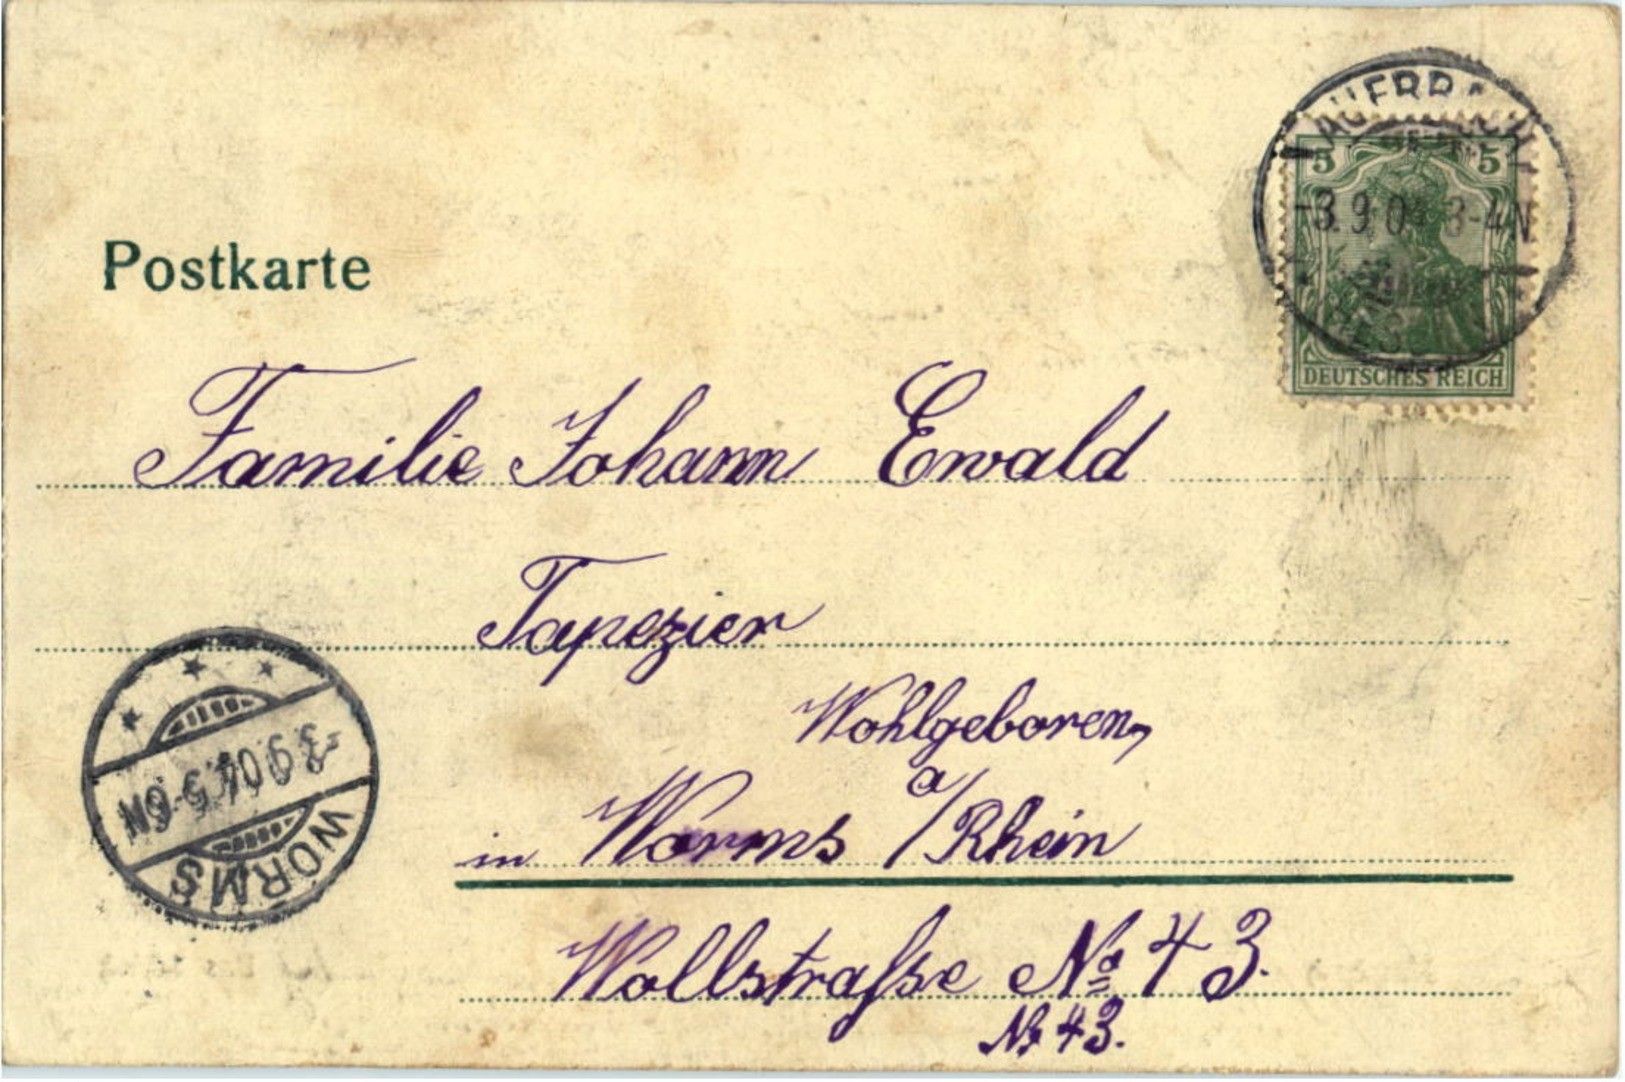 AUERBACH
5 5
-3.9.04 3-4N
HESS
DEUTSCHES REICH
Postkarte
Familie Johann Ewald
Tapezier
Wohlgeboren,
in Worms a/Rhein
Wollstraſse No 43.
Nr 43.
-3.9.04.5-6N
WORMS